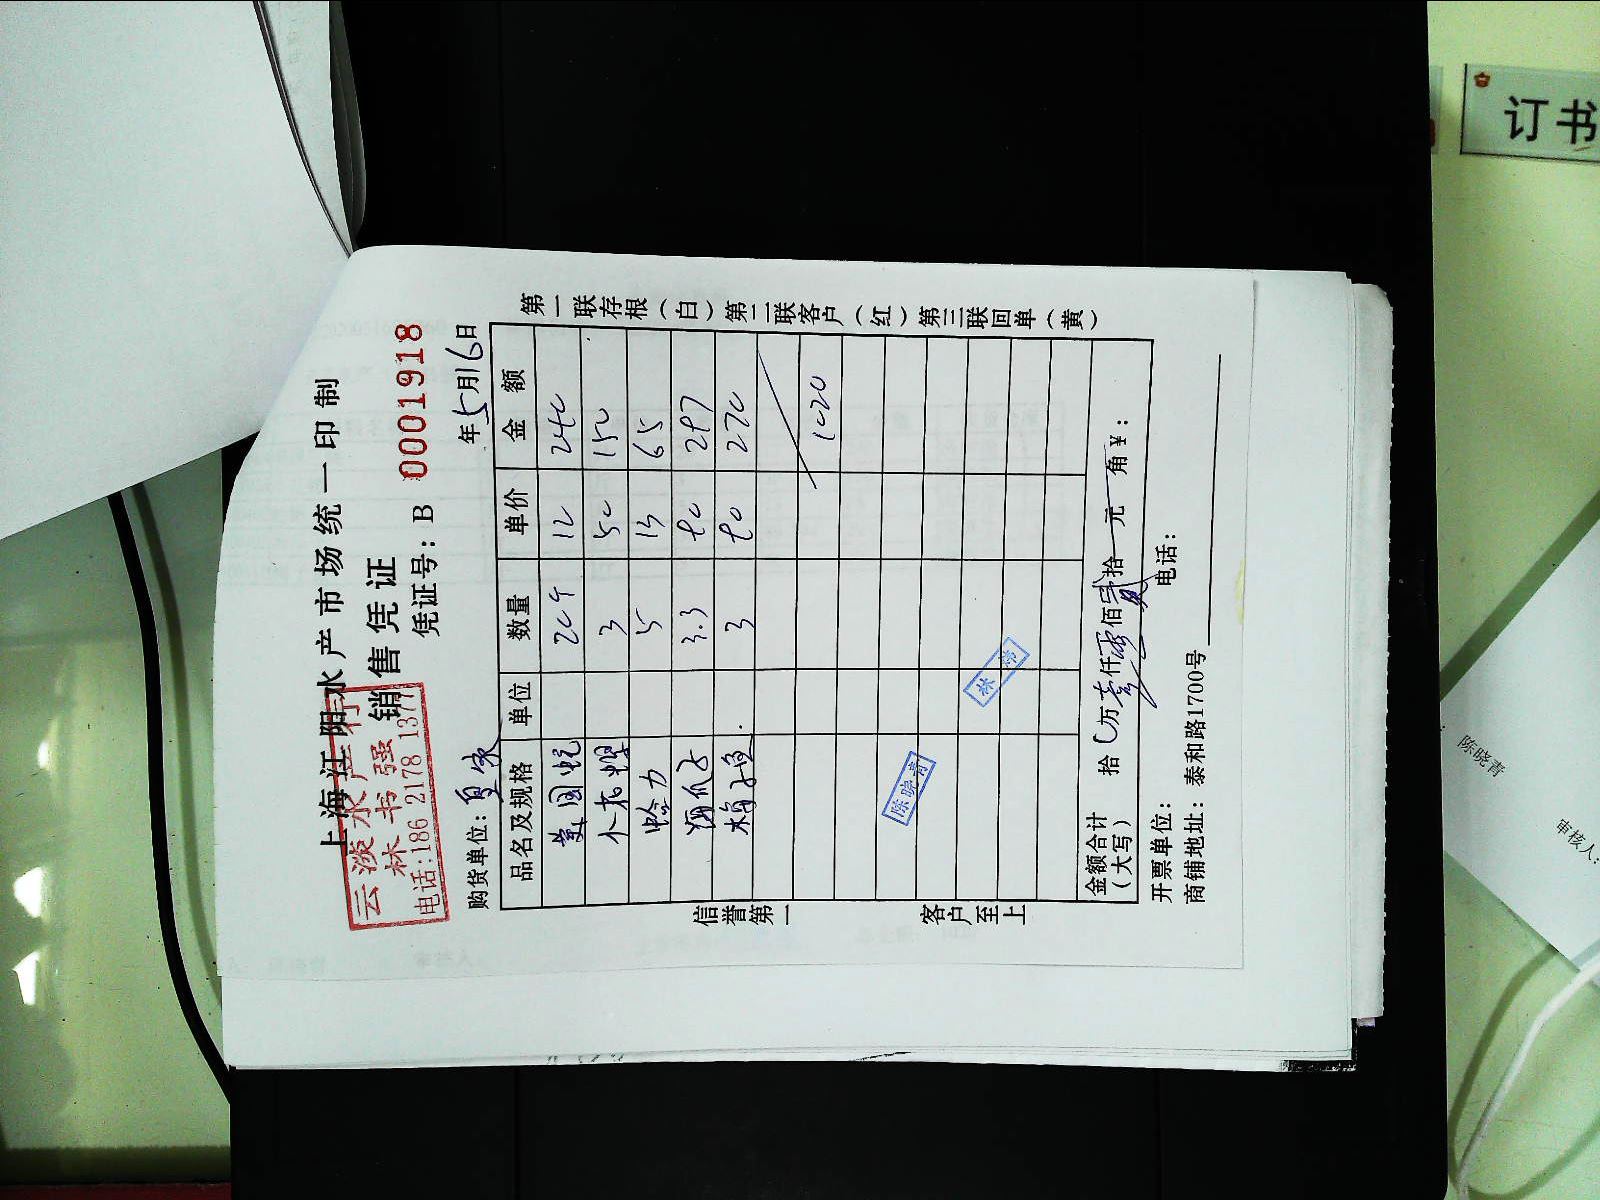 上海江阳水产市场统一印制
销售凭证
云淡水产行
林书强
电话:186 2178 1377
凭证号：B 0001918
购货单位： 年5月16日
品名及规格 单位 数量 单价 金额
美国蚬 20个 12 240
3 50 150
蛤力 5 13 65
3.3 90 297
3 90 270
1020
陈晓青
林炜
金额合计（大写） 拾 万壹仟零佰贰拾 元 角￥：
开票单位： 电话：
商铺地址：泰和路1700号
第一联存根（白）第二联客户（红）第三联回单（黄）
信誉第一 客户至上
订书
陈晓青
审核人：